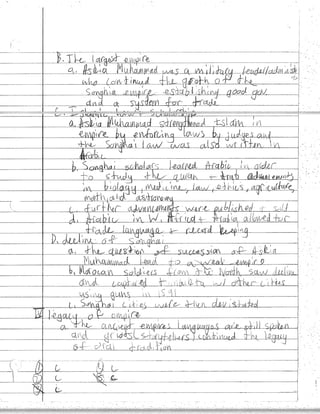 B. The largest empire
a. Askia Muhammad was a military leader/administ
who continued the growth of the
Songhia empire establishing good gov.
and a system for trade
C. Islamic law + scholarship
a. Askia Muhammad strengthened Islam in
empire by enforcing laws by judges and
the Songhai law was also written in
Arabic
b. Songhai scholars learned Arabic in order
to study the quran + Arab advancements
in biology, medicine, law, ethics, agriculture,
math, and astronomy
c. further advancements were published + sold
d. Arabic in W. Africa + Arabia allowed for
trade language + record keeping
D. decline of Songhai
a. the question of succession of Askia
Muhammad lead to a weak empire
b. Moroccan soldiers from the North saw decline
and captured w/ other cities
using guns in 1591
c. Songhai cities were then devistated
legacy of empire
a. the ancient empires languages are still spoken
and griots (storytellers) continued the legacy
of oral tradition
① C
② C
C